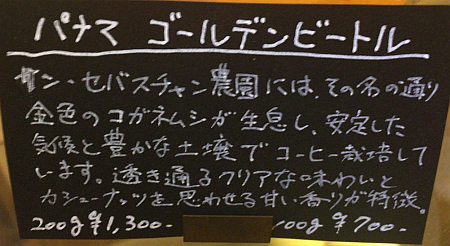 パナマ ゴールデンビートル
サン・セバスチャン農園には、その名の通り
金色のコガネムシが生息し、安定した
気候と豊かな土壌でコーヒー栽培して
います。透き通るクリアな味わいと
カシューナッツを思わせる甘い香りが特徴。
200g ¥1,300- 100g ¥700-